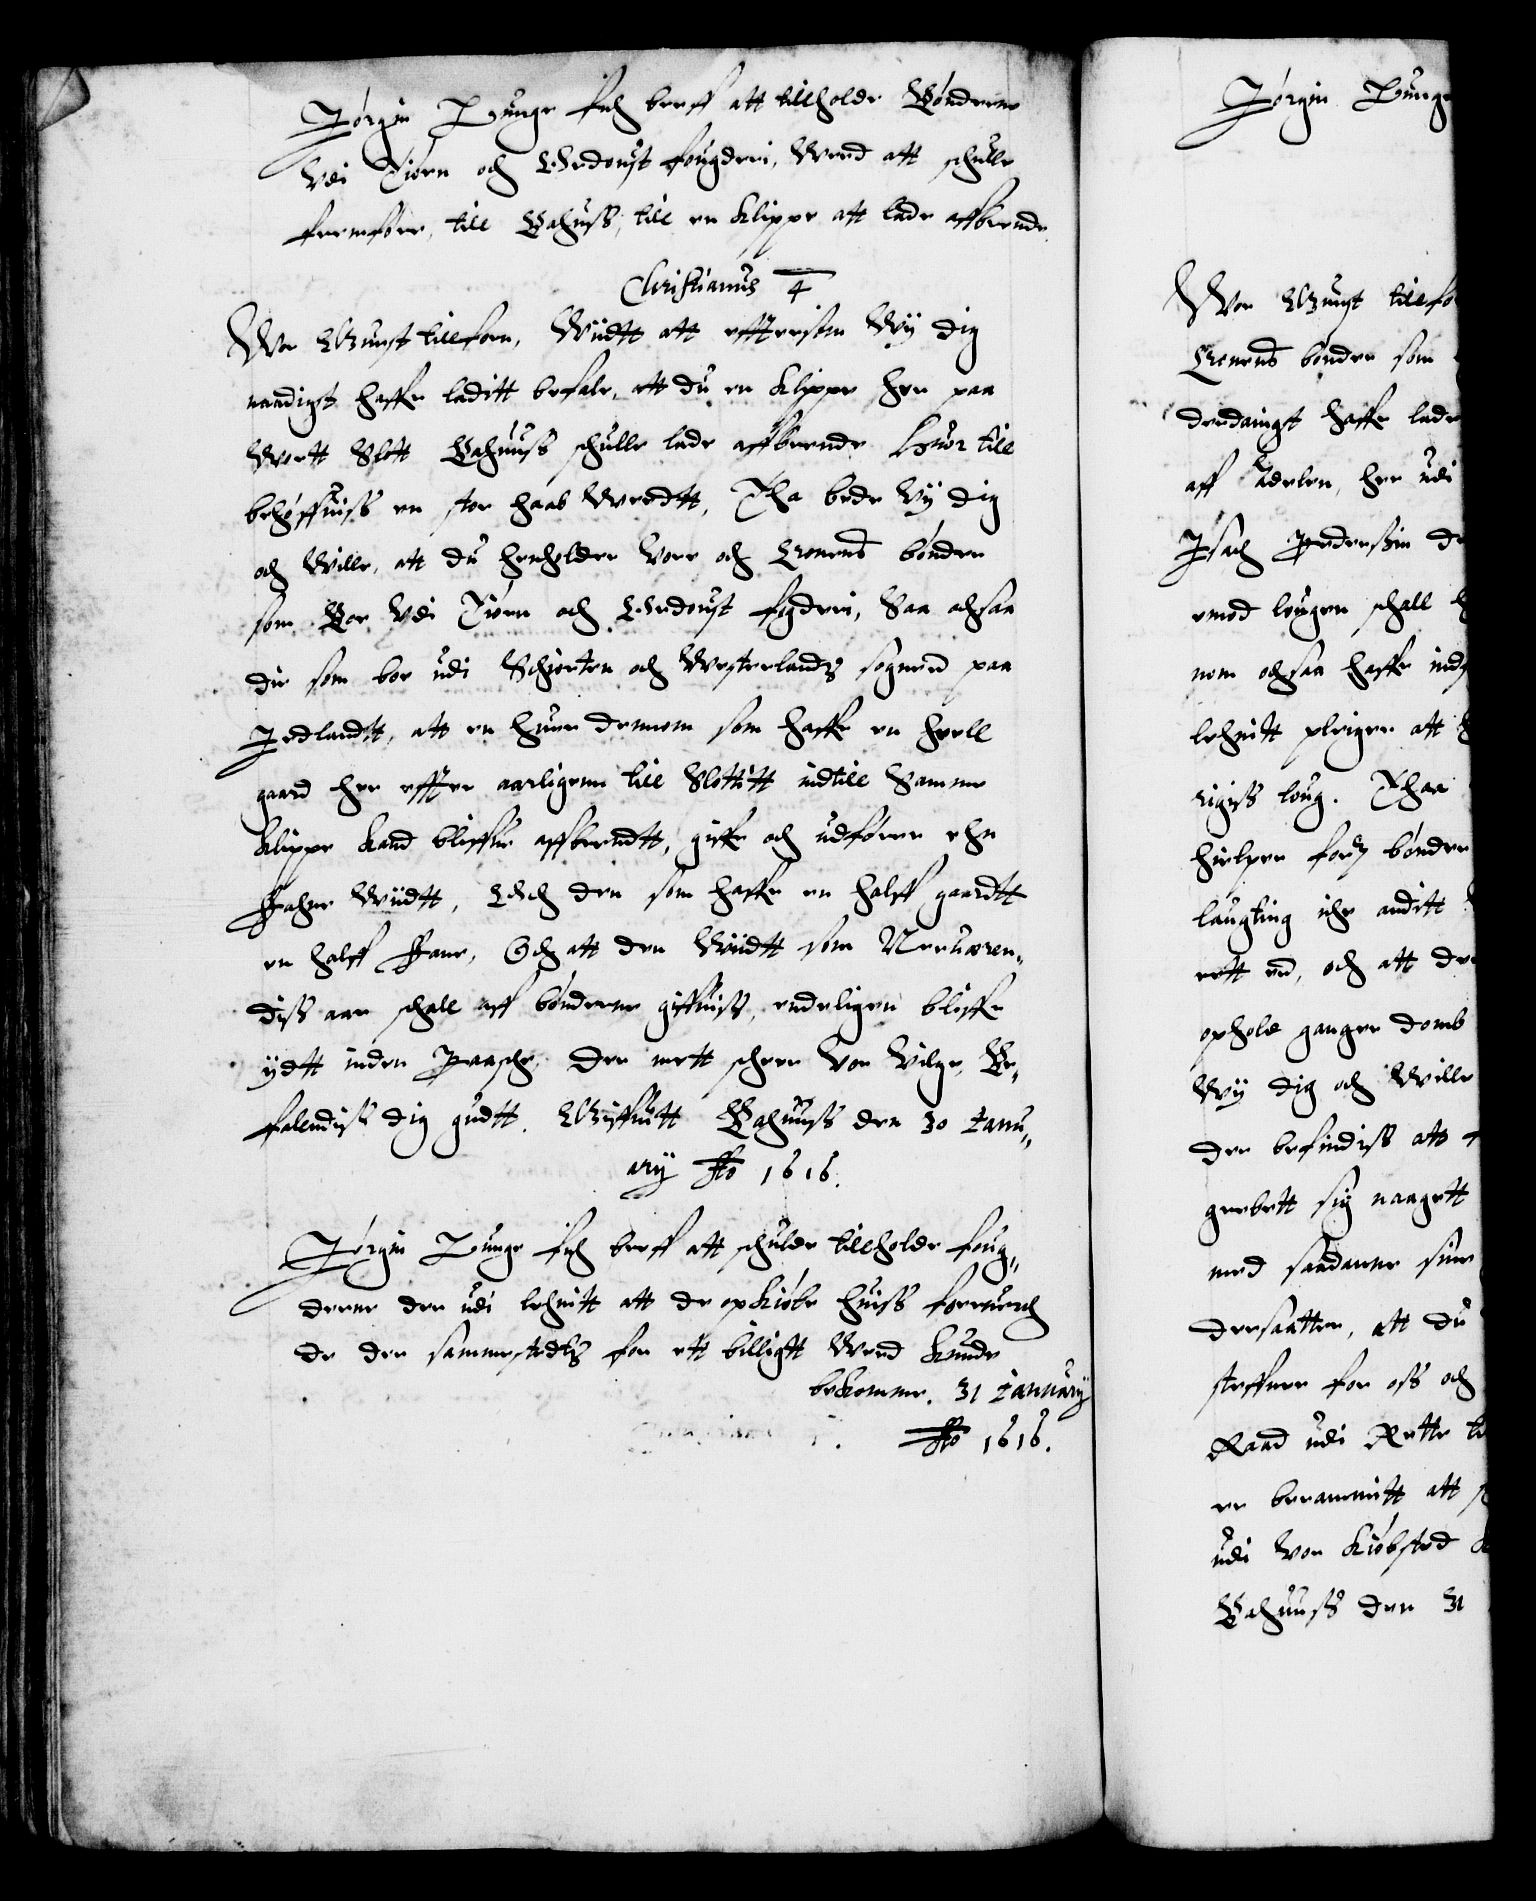 Jørgin Lunge fich breff att tillholde Bønderne
Vdi Tiørn och Ordoust fougderi, Weed att schulle
fremføre, till Bahuss, till en Klippe att lade affbrende.
Christianus 4
Wor Gunst tilforn, Wiidtt att effttersom Wÿ dig
naadigst haffe laditt befale, att du en Klippe her paa
Wortt Slott Bahuuss schulle lade affbrende Huor till
behøffuiss en stor haab Weedtt, Tha bede Wÿ dig
och Wille, att du henholder Vore och Cronens bønder
som Boe Vdi Tiørn och Ordoust fogderi, Saa ochsaa
die som boe udi Schiorten och Westerlandz sognen paa
Jedlandtt, att en huer dennom som haffe en heell
gaard her effter aarligenn till Slottitt indtill Samme
Klippe Kand bliffue affbrendtt, giffe och udførre ehn
Fahne Wiidtt, Och den som haffe en halff gaardtt
en halff Fane, Och att den Wiidtt som Neruæren¬
diss aar schall aff bønderne giffuiss, endeligen bliffe
ÿdtt inden Paasche, der mett scheer Vor Vilge, Be¬
falendiss dig gudtt. Giffuitt Bahuuss den 30 Janu¬
arÿ Ao 1616.
Jørgin Lunge fich breff att schulde tillholde foug¬
derne der udi lehnitt att de opkiøbe huiss forraad
de der sammestedtz for ett billigtt Werd Kunde
bekomme. 31 Januarÿ
Ao 1616.
Jørgin Lunge
Wor Gunst tillfo
Cronens bønder som
derdanigst haffe lade
aff Adelen, her udi
Isach Pederssin de
emod lougen schall
nom ochsaa haffe ind
lehnitt pleiger att
rigiss loug. Thaa
hielper ford bønder
laugting iche anditt
rett end, och att de
ophold ganger domb
Wÿ dig och Wille
der befindiss att
greebett sig naagett
med saadanne sine
dersaatter, att du
steffner for oss och
Raad udi Rette
er berammitt att
udi Vor Kiøbsted
Bahuuss den 31